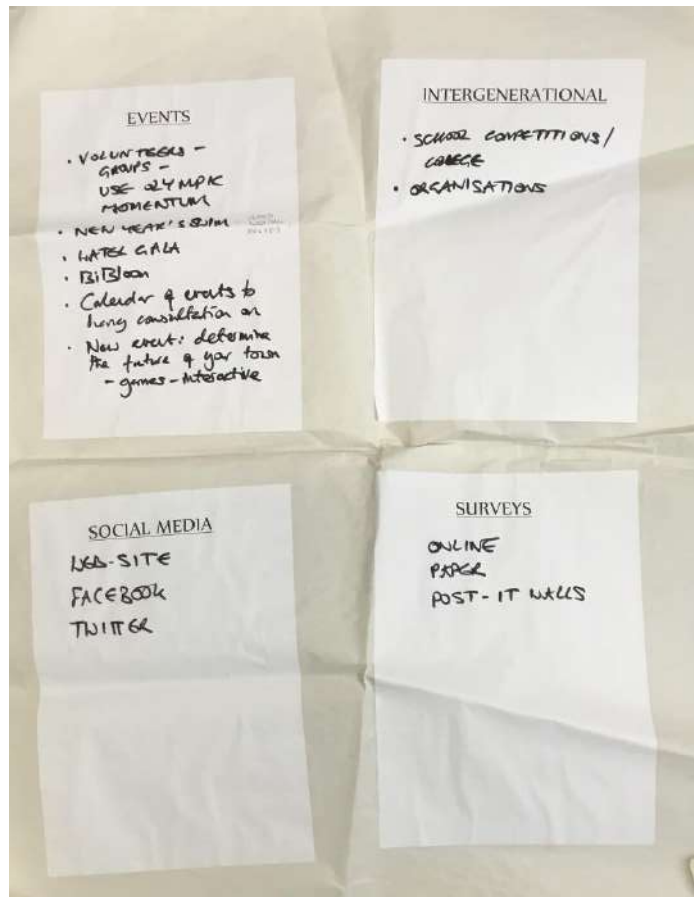 EVENTS
• VOLUNTEERS –
GROUPS –
USE OLYMPIC
MOMENTUM
• NEW YEAR'S SWIM
• WATER GALA
• BiBloon
• Calendar of events to
hang consultation on
• New event: determine
the future of your town
– games – interactive
INTERGENERATIONAL
• SCHOOL COMPETITIONS/
COLLEGE
• ORGANISATIONS
SOCIAL MEDIA
WEB-SITE
FACEBOOK
TWITTER
SURVEYS
ONLINE
PAPER
POST-IT WALLS